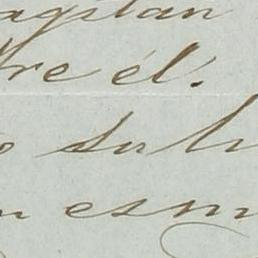 apitan
tre él.
o su h
n esm